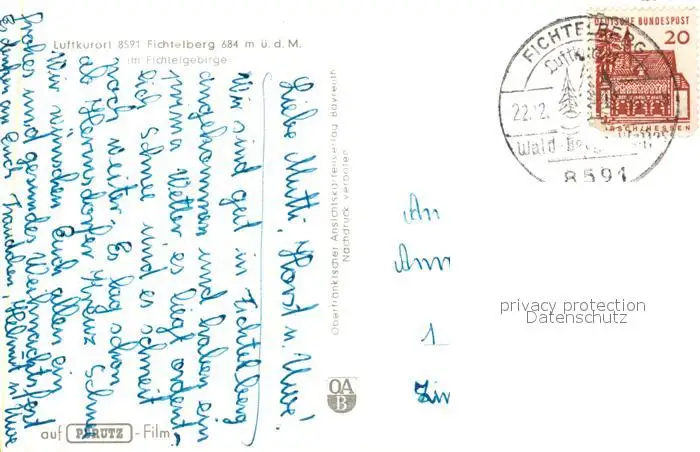 Luftkurort 8591 Fichtelberg 684 m ü. d. M.
im Fichtelgebirge
Liebe Mutti, Horst u. Uwe!
Wir sind gut in Fichtelberg
angekommen und haben ein
prima Wetter es liegt ordent-
lich Schnee und es schneit
noch weiter. Es lag schon
ab Hermsdorfer Kreuz Schnee
Wir wünschen Euch allen ein
frohes und gesundes Weihnachtsfest
Es denken an Euch Traudchen Helmut u. Uwe
Oberfränkischer Ansichtskartenverlag Bayreuth
Nachdruck verboten
OA
B
auf PERUTZ -Film
DEUTSCHE BUNDESPOST
20
LORSCH/HESSEN
FICHTELBERG
Luftkurort
22.12.
Wald
8591
An
1
privacy protection
Datenschutz